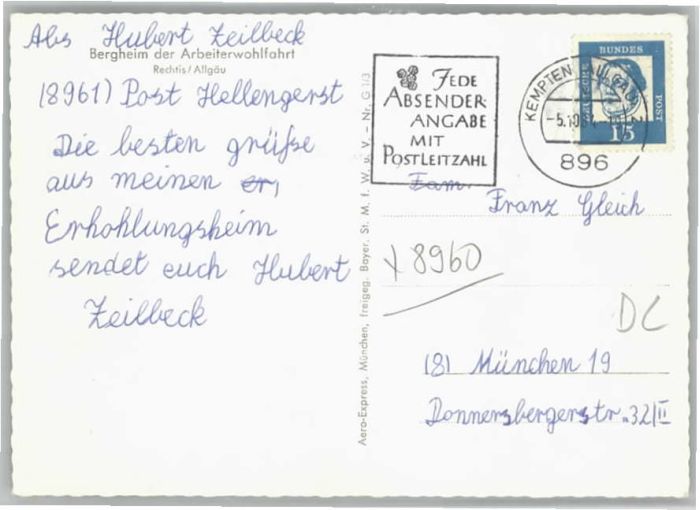 Abs Hubert Zeilbeck
Bergheim der Arbeiterwohlfahrt
Rechtis/Allgäu
(8961) Post Hellengerst
Die besten grüße
aus meinen er,
Erhohlungsheim
sendet euch Hubert
Zeilbeck
Aero-Express, München, freigeg. Bayer. St. M. f. W. u. V. – Nr. G 1/3
JEDE
ABSENDER-
ANGABE
MIT
POSTLEITZAHL
KEMPTEN
896
BUNDES
POST
15
Fam.
Franz Gleich
x 8960
DC
(8) München 19
Donnersbergerstr. 32/II